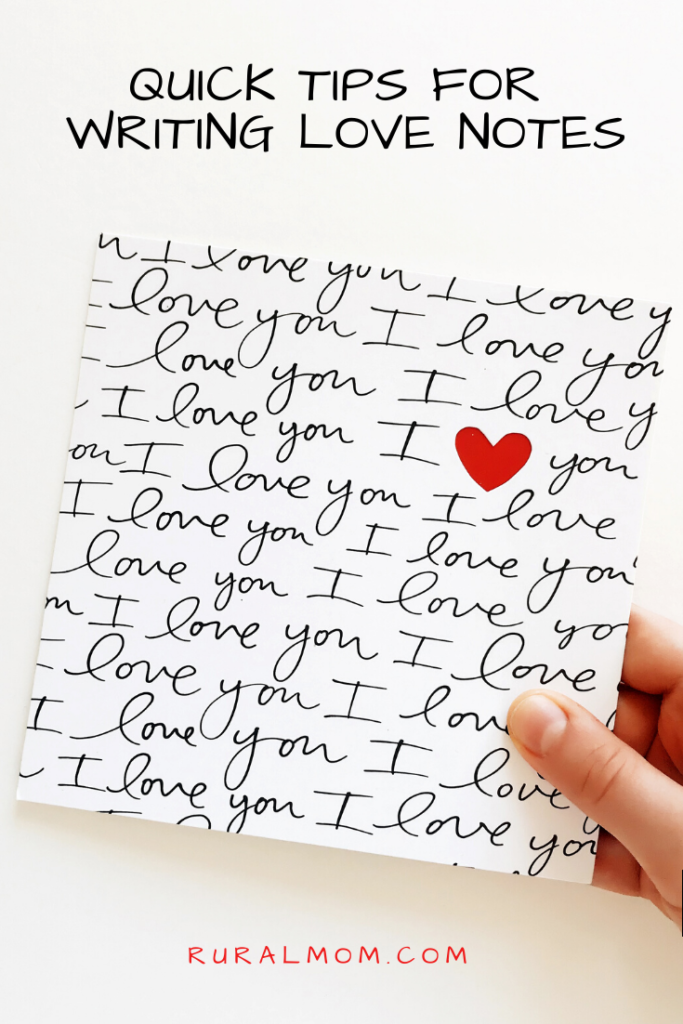 QUICK TIPS FOR
WRITING LOVE NOTES
I love you I love y
love you I love you
love you I love y
I love you I you
ou I love you I love
I love you I love you
love you I love yo
I love you I love
love you I love
I love you I love
I love you I love you
RURALMOM.COM